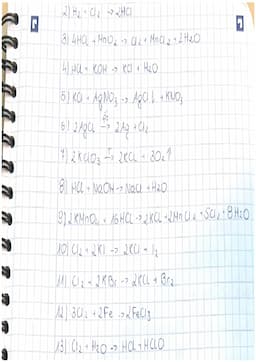 2) H₂ + Cl₂ → 2HCl
3) 4HCl + MnO₂ → Cl₂ + MnCl₂ + 2H₂O
4) HCl + KOH → KCl + H₂O
5) KCl + AgNO₃ → AgCl↓ + KNO₃
6) 2AgCl → 2Ag + Cl₂
7) 2KClO₃ → 2KCl + 3O₂↑
8) HCl + NaOH → NaCl + H₂O
9) 2KMnO₄ + 16HCl → 2KCl + 2MnCl₂ + 5Cl₂ + 8H₂O
10) Cl₂ + 2KI → 2KCl + I₂
11) Cl₂ + 2KBr → 2KCl + Br₂
12) 3Cl₂ + 2Fe → 2FeCl₃
13) Cl₂ + H₂O → HCl + HClO